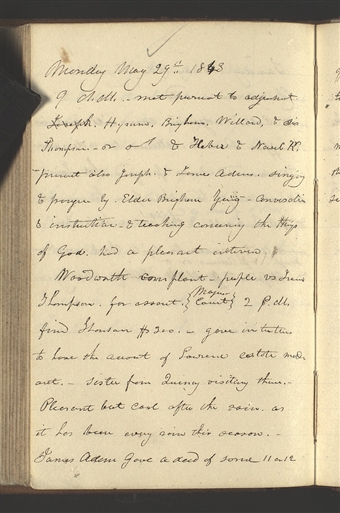 Monday May 29th 1843
9 A.M. met pursuant to adjournt
Joseph. Hyrum. Brigham, Willard, & Sis
Thompson - & Heber & Newel K.
present also Joseph & James Adams. singing
& prayer by Elder Brigham Young - conversation
& instruction - & teaching concerning the things
of God. had a pleasant interview
Woodworth complaint. people vs
Thompson. for assault. {Mayors Court} 2 P.M.
fined Thomson $3.00. - gave instructions
to have the account of Lawrence estate made
out. - Sister from Quincy visiting there. -
Pleasant but cool after the rain. as
it has been every rain this season. -
James Adams Gave a deed of some 11 or 12